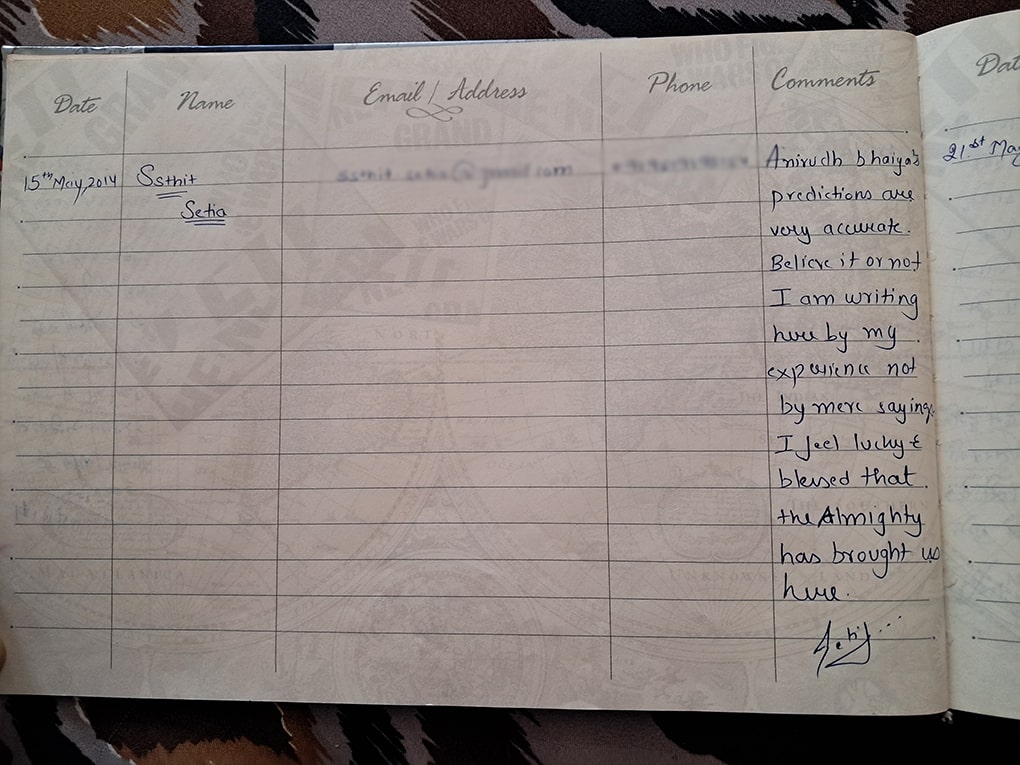 Date Name Email / Address Phone Comments
15th May, 2014 Ssthit Anirudh bhaiya's
Setia predictions are
very accurate.
Believe it or not
I am writing
here by my
experience not
by mere sayings
I feel lucky &
blessed that
the Almighty
has brought us
here.
21st May